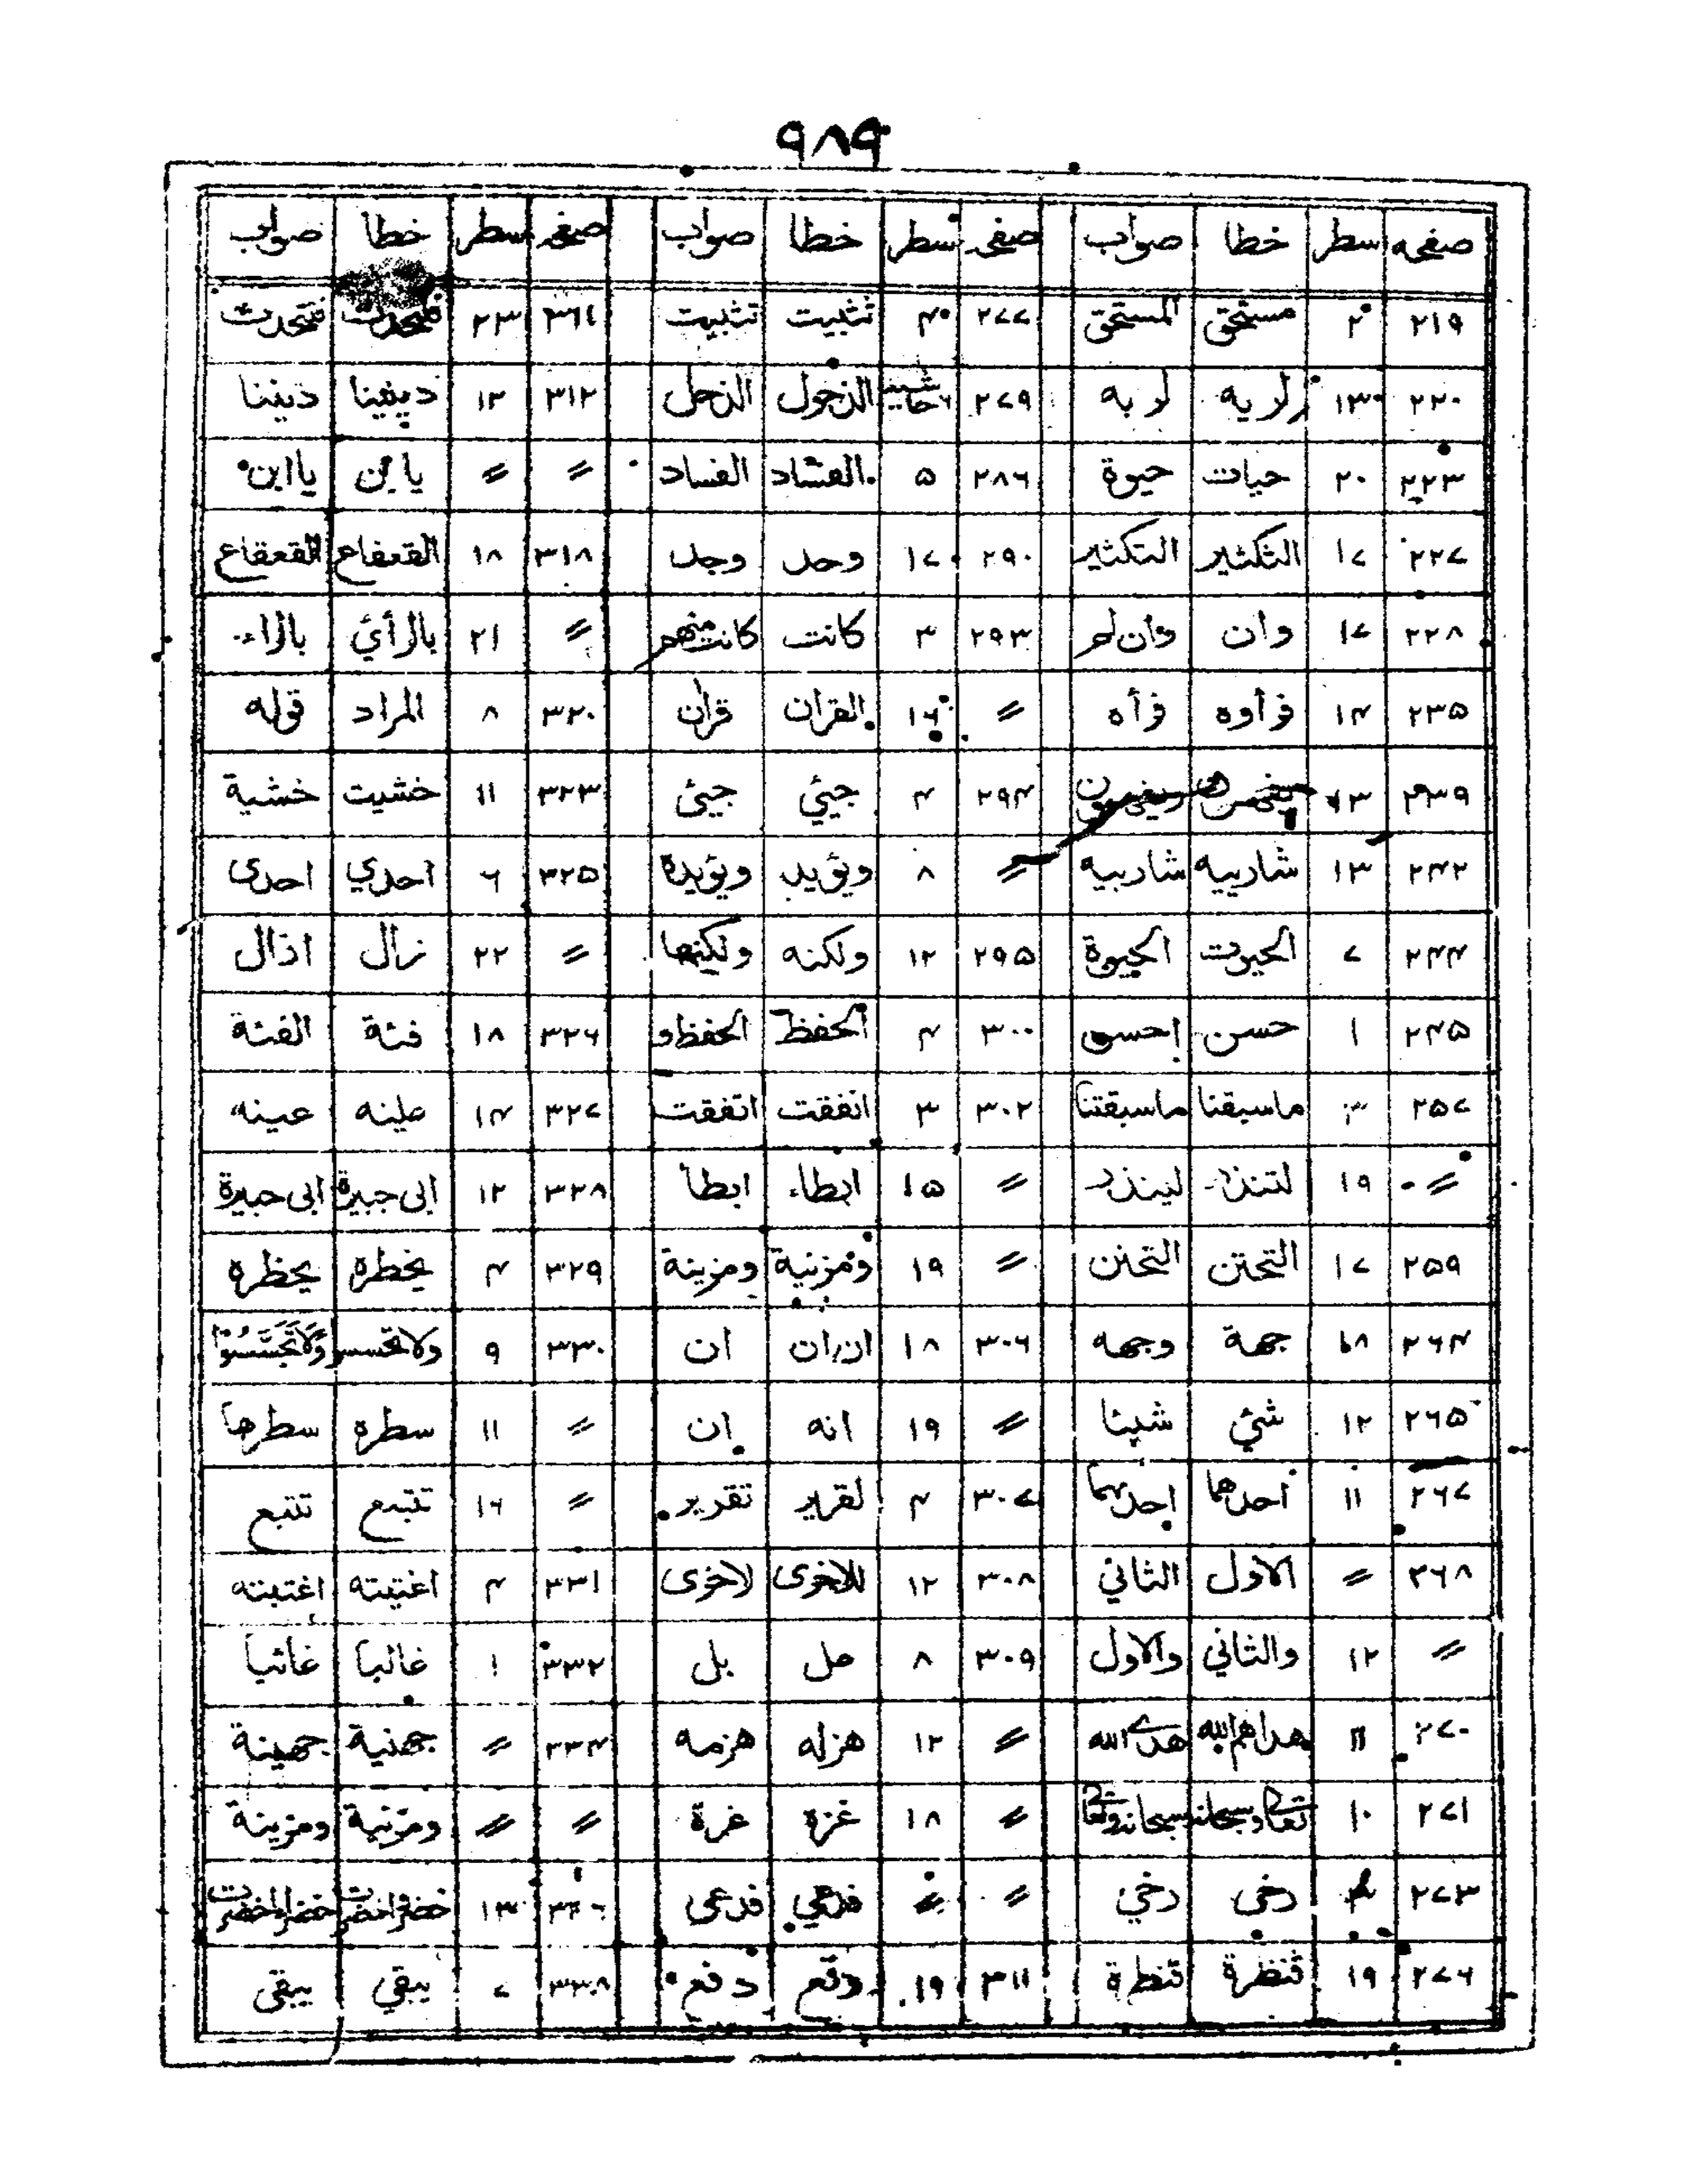 ٩٨٩
صفحه سطر خطا صواب صفحه سطر خطا صواب صفحه سطر خطا صواب
٢١٩ ٢ مستحق المستحق ٢٧٧ ٤ تثبيت تثبيت ٣١٤ ٢٣ فتحدث
٢٢٠ ١٣ لريه لربه ٢٧٩ حاشيه ٦ الذحول الذحل ٣١٢ ١٢ دينينا ديننا
٢٢٣ ٢٠ حيات حيوة ٢٨٦ ٥ الفشاد الفساد 〃 〃 يابن ياابن
٢٢٧ ١٧ الثكثير التكثير ٢٩٠ ١٧ وحد وجد ٣١٨ ١٨ القعفاع القعقاع
٢٢٨ ١٧ وان وان لم ٢٩٣ ٣ كانت كانت منهم 〃 ٢١ بالرأئ بالراء
٢٣٥ ١٤ فرأوه فرأه 〃 ١٦ القران قران ٣٢٠ ٨ المراد قوله
٢٣٩ ١٣ ٢٩٤ ٤ جيئ جيئ ٣٢٣ ١١ خشيت خشية
٢٤٢ ١٣ شاربيه شاربيه 〃 ٨ ويؤيد ويؤيدة ٣٢٥ ٦ احدي احدى
٢٤٤ ٧ الحيوت الحيوة ٢٩٥ ١٢ ولكنه ولكنها 〃 ٢٢ نزال اذال
٢٤٥ ١ حسن احسن ٣٠٠ ٤ الحفظ الحفظ و ٣٢٦ ١٨ فئة الفئة
٢٥٧ ٣ ماسبقنا ماسبقتنا ٣٠٢ ٣ اتفقت اتفقت ٣٢٧ ١٤ علينه عينه
〃 ١٩ لتنذر لينذر 〃 ١٥ ابطاء ابطأ ٣٢٨ ١٢ ابى جبيرة ابى جبيرة
٢٥٩ ١٧ التحتن التحنن 〃 ١٩ ومزنية ومزينة ٣٢٩ ٤ يخطره يحظره
٢٦٤ ١٨ جهة وجهه ٣٠٦ ١٨ ان ان ان ٣٣٠ ٩ ولا تحسسوا وَلَا تَجَسَّسُوْا
٢٦٥ ١٢ شئ شيئا 〃 ١٩ انه ان 〃 ١١ سطره سطرها
٢٦٧ ١١ احدهما احدهما ٣٠٧ ٤ لقرير تقرير 〃 ١٦ تتبع تتبع
٢٦٨ 〃 الاول الثاني ٣٠٨ ١٢ للاخرى لاخرى ٣٣١ ٤ اغتيبته اغتبته
〃 ١٢ والثاني والاول ٣٠٩ ٨ حل بل ٣٣٢ ١ غالبا غائبا
٢٧٠ ١١ هداهم الله هدى الله 〃 ١٢ هزله هزمه ٣٣٤ 〃 جهنية جهينة
٢٧١ ١٠ تعالى وسبحانه سبحانه وتعالى 〃 ١٨ غزه غرة 〃 〃 ومزنية ومزينة
٢٧٣ رخى رخي 〃 〃 فدعي فدعى ٣٣٦ ١٣
٢٧٦ ١٩ قنظرة قنطرة ٣١١ ١٩ دقع دفع ٣٣٨ ٧ يبقي يبقى